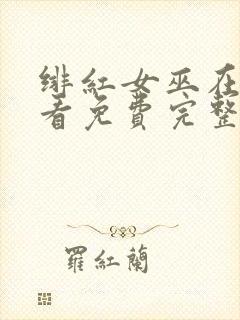 绯紅女巫在
看免費完整
羅紅蘭